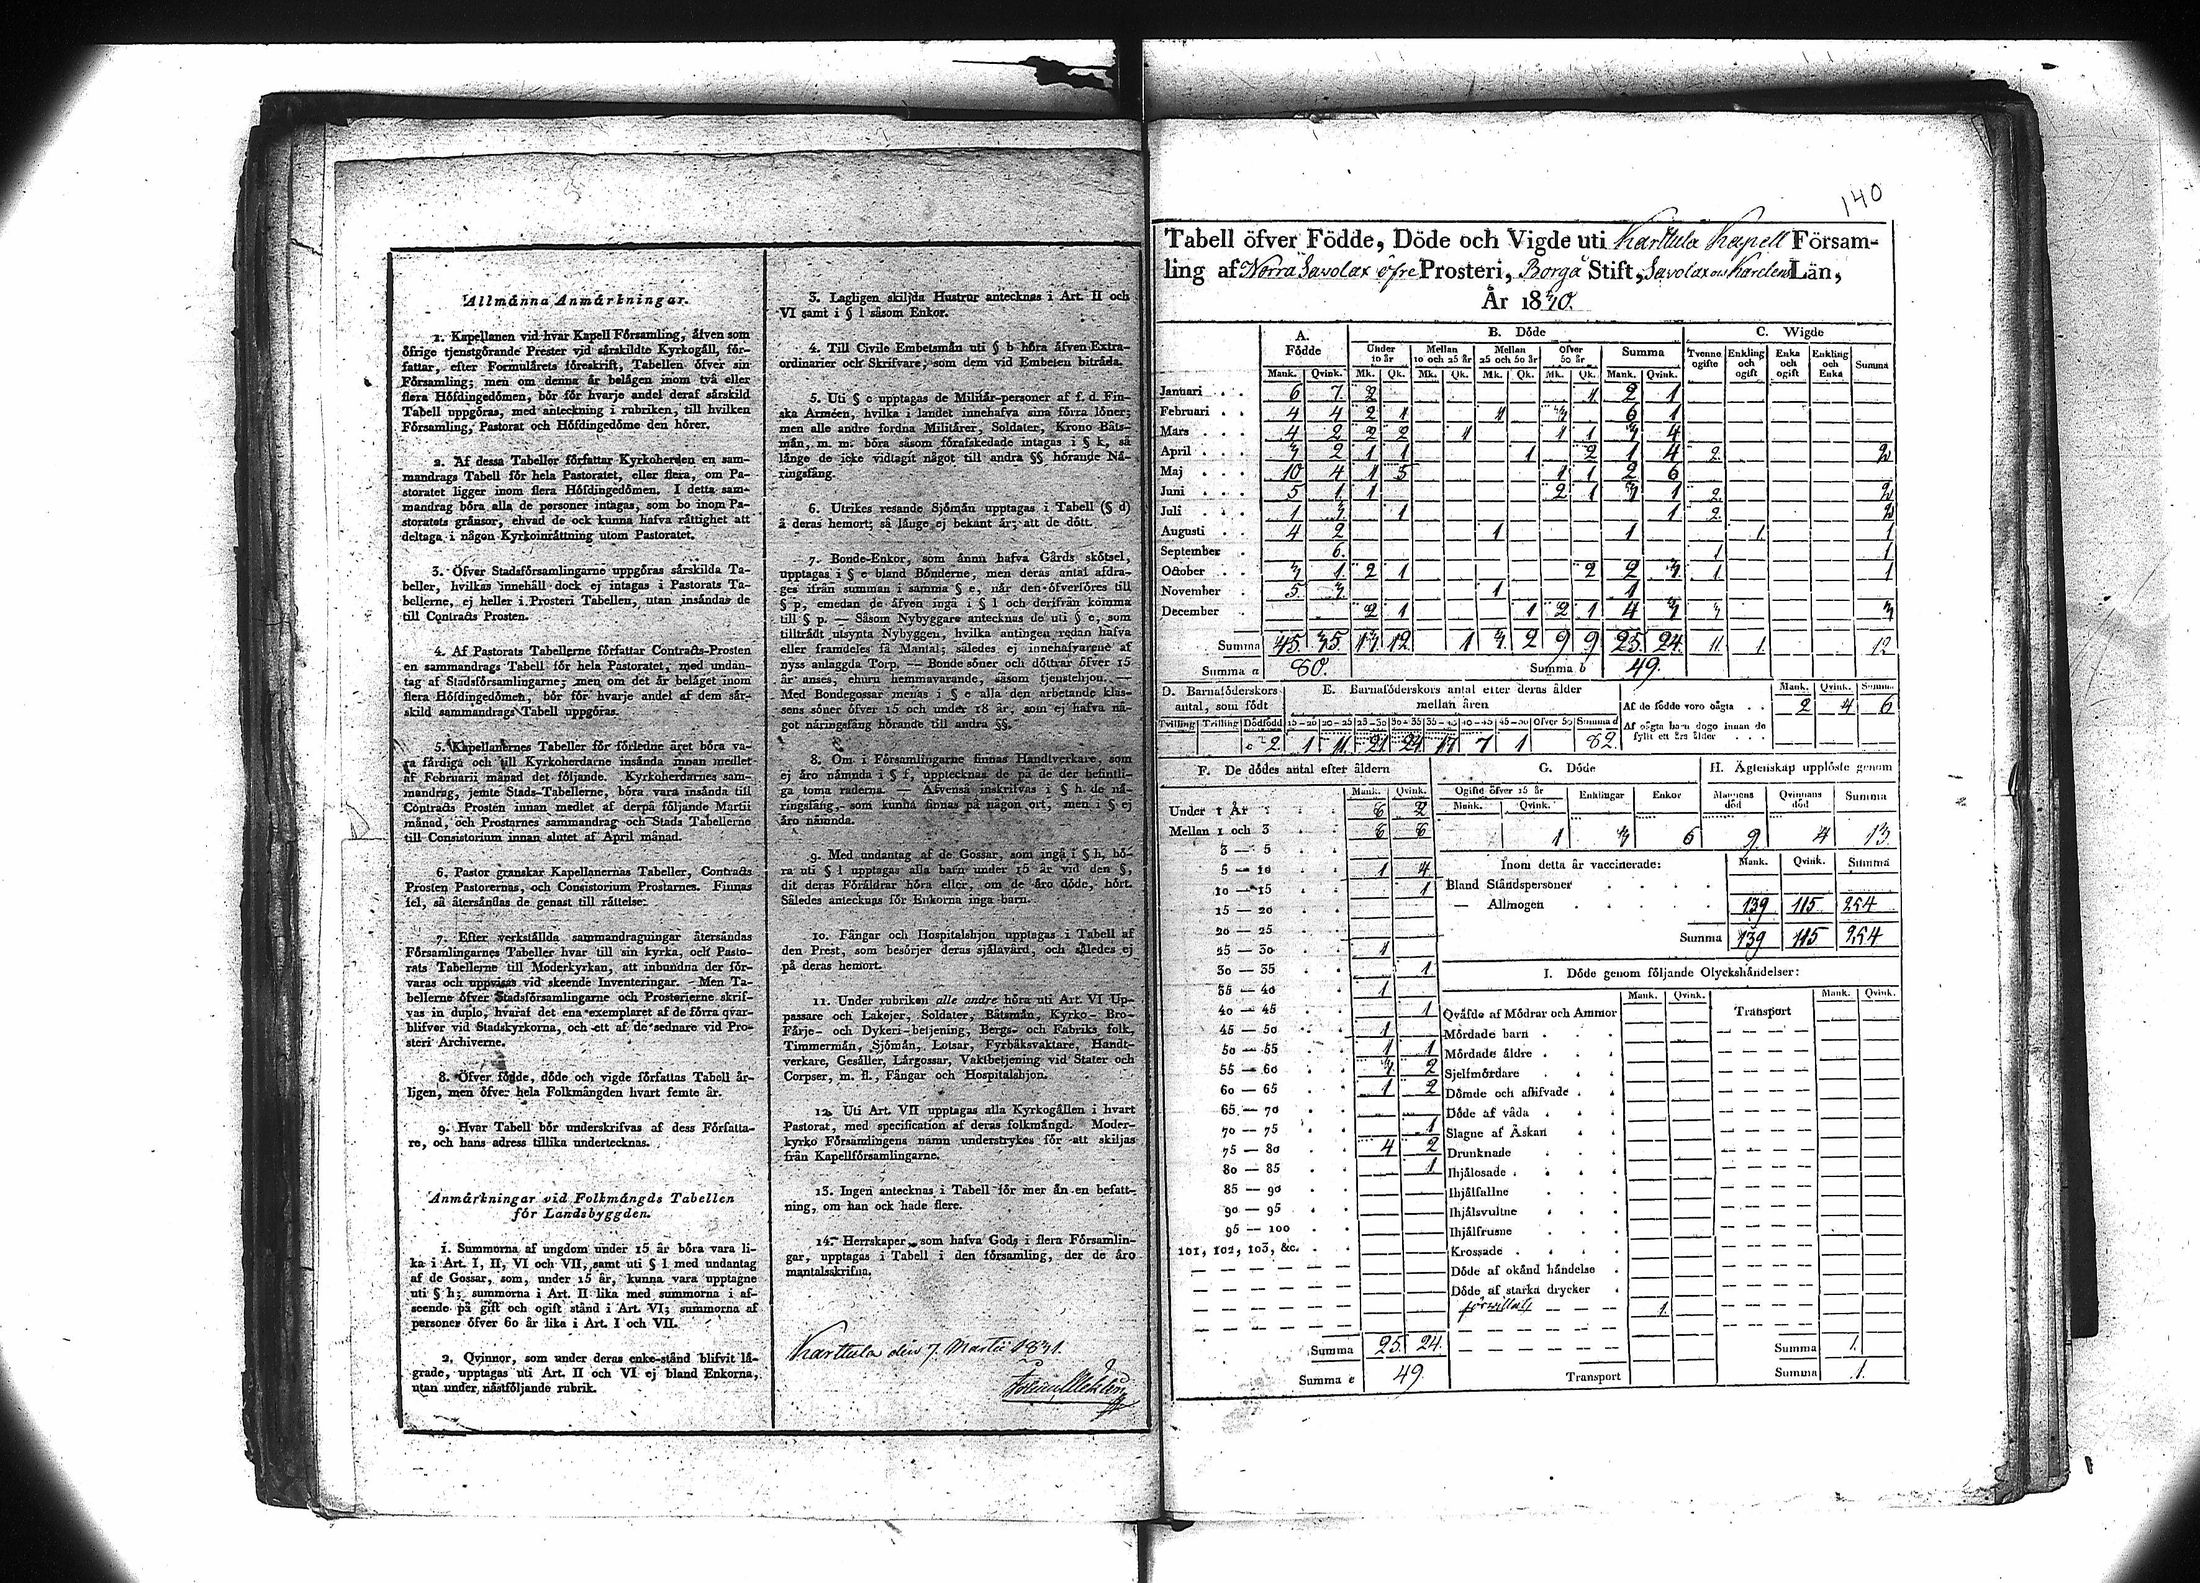 Allmänna Anmärkningar.
1. Kapellanen vid hvar Kapell Församling, äfven som
öfrige tjenstgörande Prester vid särskildte Kyrkogäll, för-
fattar, efter Formulärets föreskrift, Tabellen öfver sin
Församling; men om denna är belägen inom två eller
flera Höfdingedömen, bör för hvarje andel deraf särskild
Tabell uppgöras, med anteckning i rubriken, till hvilken
Församling, Pastorat och Höfdingedöme den hörer.
2. Af dessa Tabeller författar Kyrkoherden en sam-
mandrags Tabell för hela Pastoratet, eller flera, om Pa-
storatet ligger inom flera Höfdingedömen. I detta sam-
mandrag böra alla de personer intagas, som bo inom Pa-
storatets gränsor, ehvad de ock kunna hafva rättighet att
deltaga i någon Kyrkoinrättning utom Pastoratet.
3. Öfver Stadsförsamlingarne uppgöras särskilda Ta-
beller, hvilkas innehåll dock ej intagas i Pastorats Ta-
bellerne, ej heller i Prosteri Tabellen, utan insändas de
till Contracts Prosten.
4. Af Pastorats Tabellerne författar Contracts-Prosten
en sammandrags Tabell för hela Pastoratet, med undan-
tag af Stadsförsamlingarne; men om det är beläget inom
flera Höfdingedömen, bör för hvarje andel af dem sär-
skild sammandrags Tabell uppgöras.
5. Kapellanernes Tabeller för förledne året böra va-
ra färdiga och till Kyrkoherdarne insända innan medlet
af Februarii månad det följande. Kyrkoherdarnes sam-
mandrag, jemte Stads-Tabellerne, böra vara insända till
Contracts Prosten innan medlet af derpå följande Martii
månad, och Prostarnes sammandrag och Stads Tabellerne
till Consistorium innan slutet af April månad.
6. Pastor granskar Kapellanernas Tabeller, Contracts
Prosten Pastorernas, och Consistorium Prostarnes. Finnas
fel, så återsändas de genast till rättelse.
7. Efter verkställda sammandragningar återsändas
Församlingarnes Tabeller hvar till sin kyrka, och Pasto-
rats Tabellerne till Moderkyrkan, att inbundna der för-
varas och uppvisas vid skeende Inventeringar. - Men Ta-
bellerne öfver Stadsförsamlingarne och Prosterierne skrif-
vas in duplo, hvaraf det ena exemplaret af de förra qvar-
blifver vid Stadskyrkorna, och ett af de sednare vid Pro-
steri Archiverne.
8. Öfver födde, döde och vigde författas Tabell år-
ligen, men öfver hela Folkmängden hvart femte år.
9. Hvar Tabell bör underskrifvas af dess Författa-
re, och hans adress tillika undertecknas.
Anmärkningar vid Folkmängds Tabellen
för Landsbyggden.
1. Summorna af ungdom under 15 år böra vara li-
ka i Art. I, II, VI och VII, samt uti § l med undantag
af de Gossar, som, under 15 år, kunna vara upptagne
uti § h; summorna i Art. II lika med summorna i af-
seende på gift och ogift stånd i Art. VI; summorna af
personer öfver 60 år lika i Art. I och VII.
2. Qvinnor, som under deras enke-stånd blifvit lä-
grade, upptagas uti Art. II och VI ej bland Enkorna,
utan under nästföljande rubrik.
3. Lagligen skiljda Hustrur antecknas i Art. II och
VI samt i § l såsom Enkor.
4. Till Civile Embetsmän uti § b höra äfven Extra-
ordinarier och Skrifvare, som dem vid Embeten biträda.
5. Uti § c upptagas de Militär-personer af f. d. Fin-
ska Arméen, hvilka i landet innehafva sina förra löner;
men alle andre fordna Militärer, Soldater, Krono Båts-
män, m. m. böra såsom förafskedade intagas i § k, så
länge de icke vidtagit något till andra §§ hörande Nä-
ringsfång.
6. Utrikes resande Sjömän upptagas i Tabell (§ d)
å deras hemort; så länge ej bekant är; att de dött.
7. Bonde-Enkor, som ännu hafva Gårds skötsel,
upptagas i § e bland Bönderne, men deras antal afdra-
ges ifrån summan i samma § e, när den öfverföres till
§ p, emedan de äfven ingå i § l och derifrån komma
till § p. — Såsom Nybyggare antecknas de uti § e, som
tillträdt utsynta Nybyggen, hvilka antingen redan hafva
eller framdeles få Mantal; således ej innehafvarne af
nyss anlaggda Torp. — Bonde söner och döttrar öfver 15
år anses, ehuru hemmavarande, såsom tjenstehjon. —
Med Bondegossar menas i § e alla den arbetande klas-
sens söner öfver 15 och under 18 år, som ej hafva nå-
got näringsfång hörande till andra §§.
8. Om i Församlingarne finnas Handtverkare, som
ej äro nämnda i § f, upptecknas de på de der befintli-
ga toma raderna. — Äfvenså inskrifvas i § h de nä-
ringsfång, som kunna finnas på någon ort, men i § ej
äro nämnda.
9. Med undantag af de Gossar, som ingå i § h, bö-
ra uti § l upptagas alla barn under 15 år vid den §,
dit deras Föräldrar höra eller, om de äro döde, hört.
Således antecknas för Enkorna inga barn.
10. Fångar och Hospitalshjon upptagas i Tabell af
den Prest, som besörjer deras själavård, och således ej
på deras hemort.
11. Under rubriken alle andre höra uti Art. VI Up-
passare och Lakejer, Soldater, Båtsmän, Kyrko- Bro-
Färje- och Dykeri-betjening, Bergs- och Fabriks folk,
Timmermän, Sjömän, Lotsar, Fyrbåksvaktare, Handt-
verkare, Gesäller, Lärgossar, Vaktbetjening vid Stater och
Corpser, m. fl., Fångar och Hospitalshjon.
12. Uti Art. VII upptagas alla Kyrkogällen i hvart
Pastorat, med specification af deras folkmängd. Moder-
kyrko Församlingens namn understrykes för att skiljas
från Kapellförsamlingarne.
13. Ingen antecknas i Tabell för mer än en befatt-
ning, om han ock hade flere.
14. Herrskaper, som hafva Gods i flera Församlin-
gar, upptagas i Tabell i den församling, der de äro
mantalsskrifna.
Karttula den 7. Martii 1831.
140
Tabell öfver Födde, Döde och Vigde uti Karttula Kapell Försam-
ling af Norra Savolax öfre Prosteri, Borgå Stift, Savolax och Karelens Län,
År 1830.
A. Födde B. Döde C. Wigde
Under 10 år Mellan 10 och 25 år Mellan 25 och 50 år Öfver 50 år Summa Tvenne ogifte Enkling och ogift Enka och ogift Enkling och Enka Summa
Mank. Qvink. Mk. Qk. Mk. Qk. Mk. Qk. Mk. Qk. Mank. Qvink.
Januari 6 7 2 1 2 1
Februari 4 4 2 1 1 3 6 1
Mars 4 2 2 2 1 1 1 3 4
April 3 2 1 1 1 2 1 4 2 2
Maj 10 4 1 5 1 1 2 6
Juni 5 1 1 2 1 3 1 2 2
Juli 1 3 1 1 2 2
Augusti 4 2 1 1 1 1
September 6. 1 1
October 3 1 2 1 2 2 3 1 1
November 5 3 1 1
December 2 1 1 2 1 4 3 3 3
Summa 45. 35. 13 12 1 3 2 9 9 25 24. 11. 1. 12
Summa a 80. Summa b 49.
D. Barnaföderskors antal, som födt
Tvilling Trilling Dödfödd
2
E. Barnaföderskors antal efter deras ålder mellan åren
15-20 20-25 25-30 30-35 35-40 40-45 45-50 Öfver 50 Summa d
1 11 21 24 17 7 1 82.
Mank. Qvink. Summa
Af de födde voro oägta 2 4 6
Af oägta barn dogo innan de
fyllt ett års ålder
F. De dödes antal efter åldern
Mank. Qvink.
Under 1 År 6 2
Mellan 1 och 3 6 6
3 — 5
5 — 10 1 4
10 — 15 1
15 — 20
20 — 25
25 — 30 1
30 — 35 1
35 — 40 1
40 — 45 1
45 — 50 1
50 — 55 1 1
55 — 60 3 2
60 — 65 1 2
65 — 70
70 — 75 1
75 — 80 4 2
80 — 85 1
85 — 90
90 — 95
95 — 100
101, 102, 103, &c.
Summa 25. 24.
Summa e 49.
G. Döde
Ogifte öfver 15 år Enklingar Enkor
Mank. Qvink.
1 3 6
H. Ägtenskap upplöste genom
Mannens död Qvinnans död Summa
9. 4 13.
Inom detta år vaccinerade: Mank. Qvink. Summa
Bland Ståndspersoner
— Allmogen 139 115 254
Summa 139 115 254
I. Döde genom följande Olyckshändelser:
Mank. Qvink. Mank. Qvink.
Qväfde af Mödrar och Ammor Transport
Mördade barn
Mördade äldre
Sjelfmördare
Dömde och aflifvade
Döde af våda
Slagne af Åskan
Drunknade
Ihjälosade
Ihjälfallne
Ihjälsvultne
Ihjälfrusne
Krossade
Döde af okänd händelse
Döde af starka drycker
förvillat 1.
Summa 1.
Transport Summa 1.